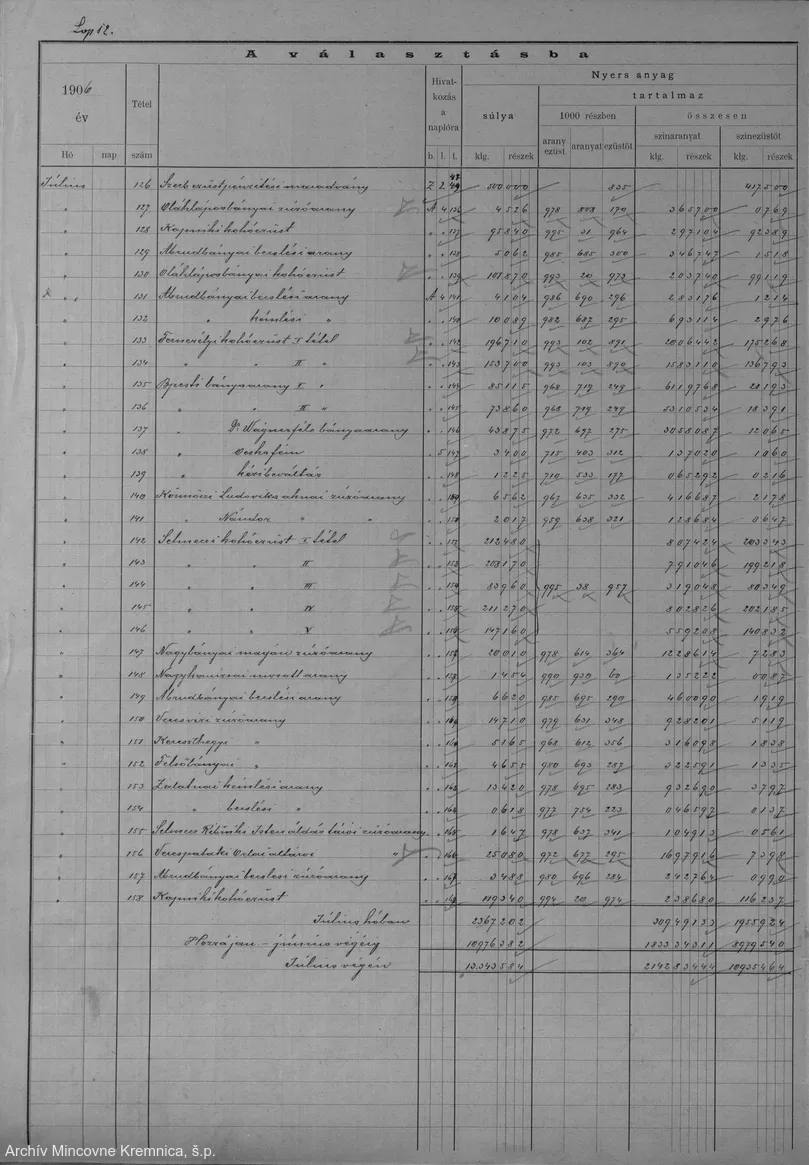 Lap 12.
A választásba
1906 év
Hó nap
Tétel szám
Hivatkozás a naplóra
b. l. t.
Nyers anyag
súlya
klg. részek
tartalmaz
1000 részben
arany ezüst. aranyat ezüstöt
összesen
színaranyat
klg. részek
színezüstöt
klg. részek
Július 126 Szerb ezüstpénzítési maradvány Z 2 500000 835 417500
" 127 Oláhláposbányai zúzóarany A 4 136 4526 978 808 170 365700 0769
" 128 Kapniki kohóezüst " " 137 95840 995 31 964 297104 92389
" 129 Abrudbányai beváltási arany " " 138 5062 985 685 300 346747 1518
" 130 Oláhláposbányai kohóezüst " " 139 101870 993 20 973 203740 99119
" 131 Abrudbányai beváltási arany A 4 141 4104 986 690 296 283176 1214
" 132 " " " " 140 10089 982 687 295 693114 2976
" 133 Fernezelyi kohóezüst I tétel " " 142 196710 993 102 891 2006442 175268
" 134 " " II " " " 143 153700 993 103 890 1583110 136793
" 135 bányaarany I " " " 144 85115 968 719 249 6119768 21193
" 136 " " II " " " 145 73860 968 719 249 5310534 18391
" 137 " Dr Wagnerféle bányaarany " " 146 43875 972 697 275 3058087 12065
" 138 " " 5 147 3400 715 403 312 137020 1060
" 139 " " " 148 1225 710 533 177 065292 0216
" 140 Körmöczi Ludovika aknai zúzóarany " " 149 6562 967 635 332 416687 2178
" 141 " Nándor " " " " 2017 959 638 321 128684 0647
" 142 Selmeczi kohóezüst I tétel " " 152 212480 807424 203343
" 143 " " II " " 153 208170 791046 199218
" 144 " " III " " 154 83960 995 38 957 319048 80349
" 145 " " IV " " 211270 802826 202185
" 146 " " V " " 147160 559208 140832
" 147 Nagybányai magán zúzóarany " " 20010 978 614 364 1228614 7283
" 148 arany " " 1454 990 930 60 135222 0087
" 149 Abrudbányai beváltási arany " " 6620 985 695 290 460090 1919
" 150 Veresvizi zúzóarany " " 14710 979 631 348 928201 5119
" 151 Kereszthegyi " " " 5165 968 612 356 316098 1838
" 152 Felsőbányai " " " 4655 980 693 287 322591 1335
" 153 Zalatnai arany " " 13420 978 695 283 932690 3797
" 154 " " " " 0618 977 754 223 046597 0137
" 155 Selmecz zúzóarany " " 1647 978 637 341 104913 0561
" 156 Verespataki Orlai altárói " " " 25080 972 677 295 1697916 7398
" 157 Abrudbányai beváltási zúzóarany " " 3488 980 696 284 242764 0990
" 158 Kapniki kohóezüst " " 119340 994 20 974 238680 116237
Július hóban 2367202 30949133 1955924
Hozzá jan – június végéig 10976382 183334311 8979540
Július végén 13343584 214283444 10935464
Archív Mincovne Kremnica, š.p.